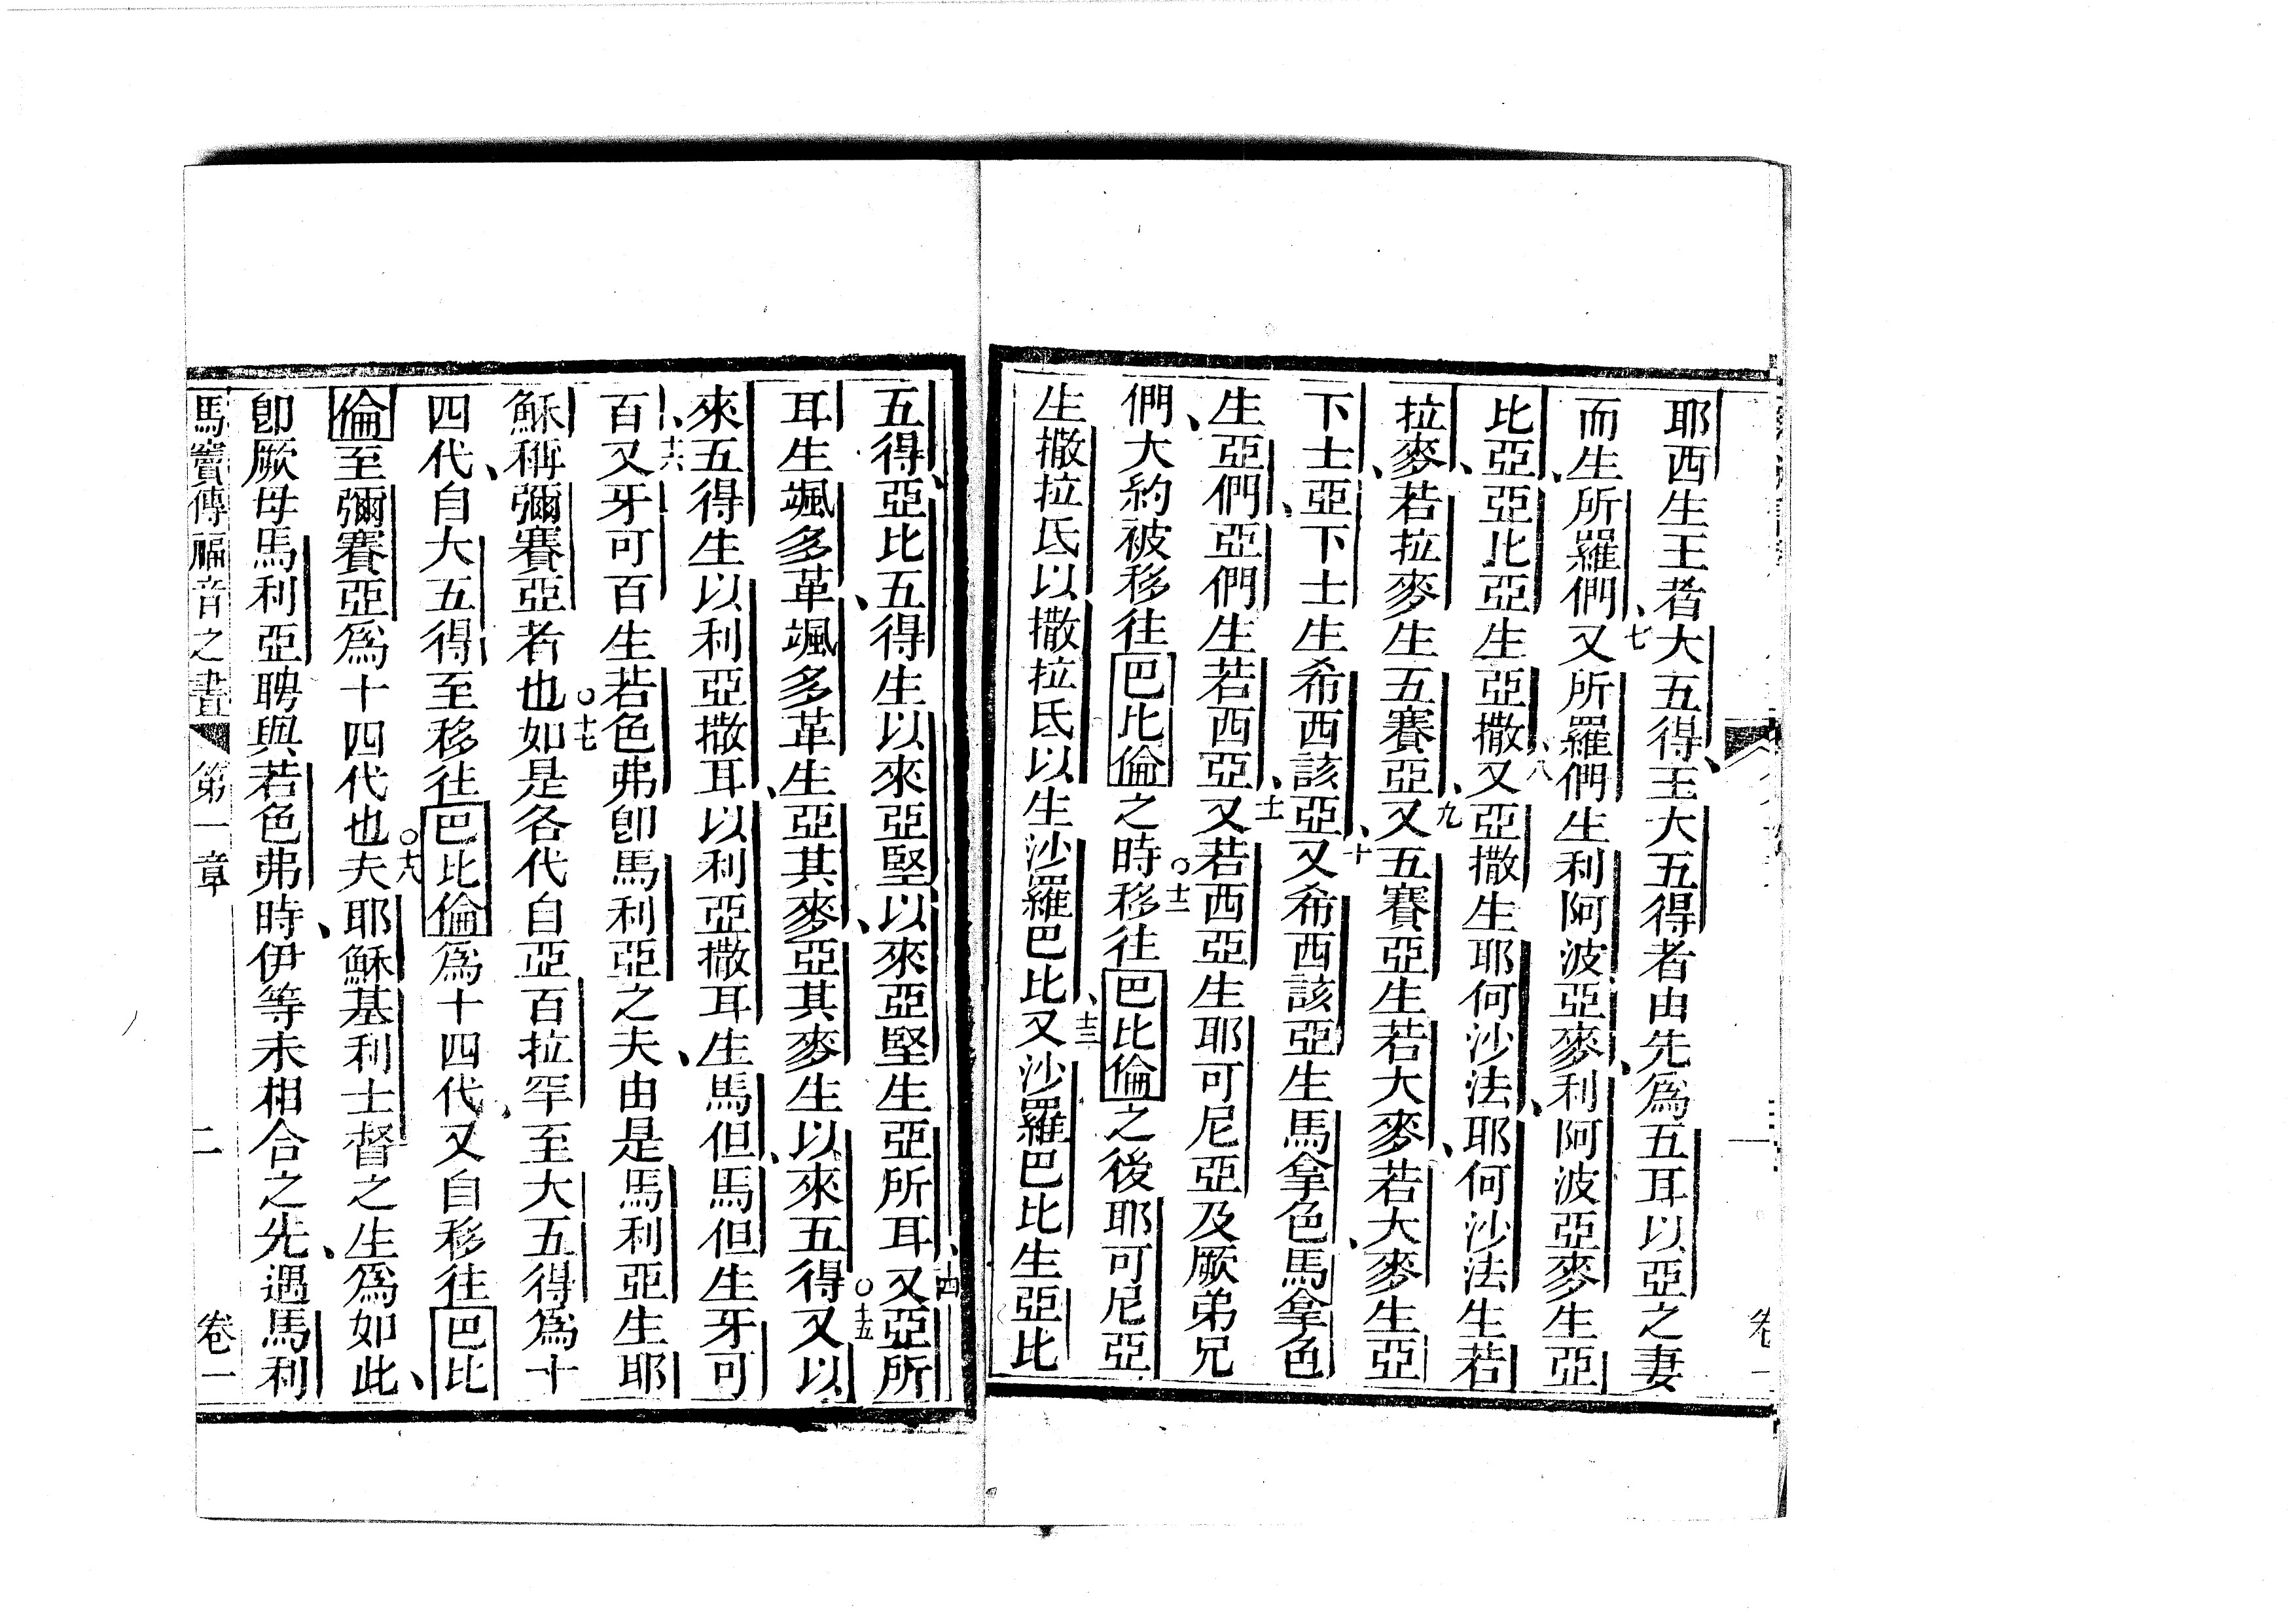 耶西生王者大五得、王大五得者由先爲五耳以亞之妻
而生所羅們、七又所羅們生利阿波亞麥、利阿波亞麥生亞
比亞、亞比亞生亞撒、八又亞撒生耶何沙法、耶何沙法生若
拉麥、若拉麥生五賽亞、九又五賽亞生若大麥、若大麥生亞
下士、亞下士生希西該亞、十又希西該亞生馬拿色、馬拿色
生亞們、亞們生若西亞、十一又若西亞生耶可尼亞及厥弟兄
們、大約被移往巴比倫之時○十二移往巴比倫之後耶可尼亞
生撒拉氐以撒拉氐以生沙羅巴比、十三又沙羅巴比生亞比
五得、亞比五得生以來亞堅、以來亞堅生亞所耳、十四又亞所
耳生颯多革、颯多革生亞其麥、亞其麥生以來五得○十五又以
來五得生以利亞撒耳、以利亞撒耳生馬但、馬但生牙可
百、十六又牙可百生若色弗卽馬利亞之夫、由是馬利亞生耶
穌稱彌賽亞者也○十七如是各代自亞百拉罕至大五得爲十
四代、自大五得至移往巴比倫爲十四代、又自移往巴比
倫至彌賽亞爲十四代也○十八夫耶穌基利士督之生爲如此、
卽厥母馬利亞聘與若色弗時、伊等未相合之先、遇馬利
馬竇傳福音之書 第一章 二 卷一